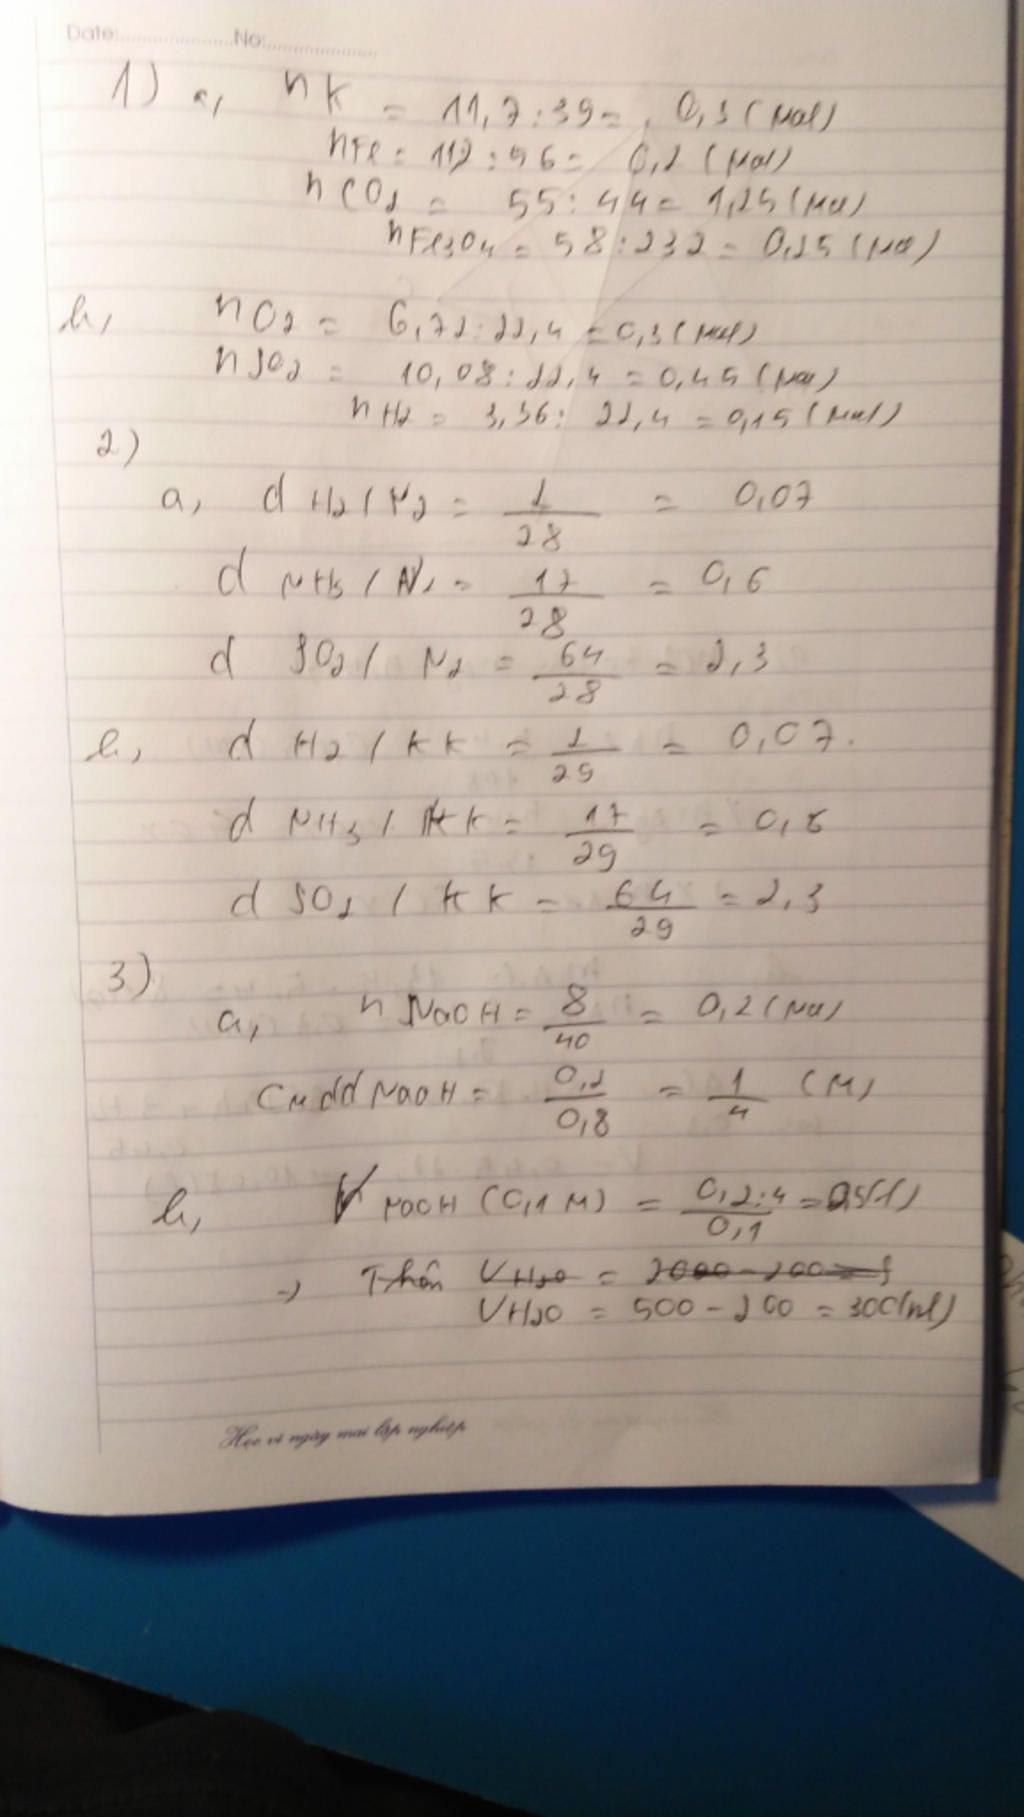 Date:..................No:..................
1) a, nK = 11,7 : 39 = 0,3 (Mol)
nFe = 112 : 56 = 0,2 (Mol)
nCO2 = 55 : 44 = 1,25 (Mol)
nFe3O4 = 58 : 232 = 0,25 (Mol)
b, nO2 = 6,72 : 22,4 = 0,3 (Mol)
nSO2 = 10,08 : 22,4 = 0,45 (Mol)
nH2 = 3,36 : 22,4 = 0,15 (Mol)
2)
a, d H2 / N2 = 2/28 = 0,07
d NH3 / N2 = 17/28 = 0,6
d SO2 / N2 = 64/28 = 2,3
b, d H2 / KK = 2/29 = 0,07.
d NH3 / KK = 17/29 = 0,6
d SO2 / KK = 64/29 = 2,3
3)
a, n NaOH = 8/40 = 0,2 (Mol)
CM dd NaOH = 0,2/0,8 = 1/4 (M)
b, V NaOH (0,1 M) = 0,2:4/0,1 = 0,5 (l)
→ Thêm VH2O = 2000 - 200 =
VH2O = 500 - 200 = 300 (ml)
Học vì ngày mai lập nghiệp